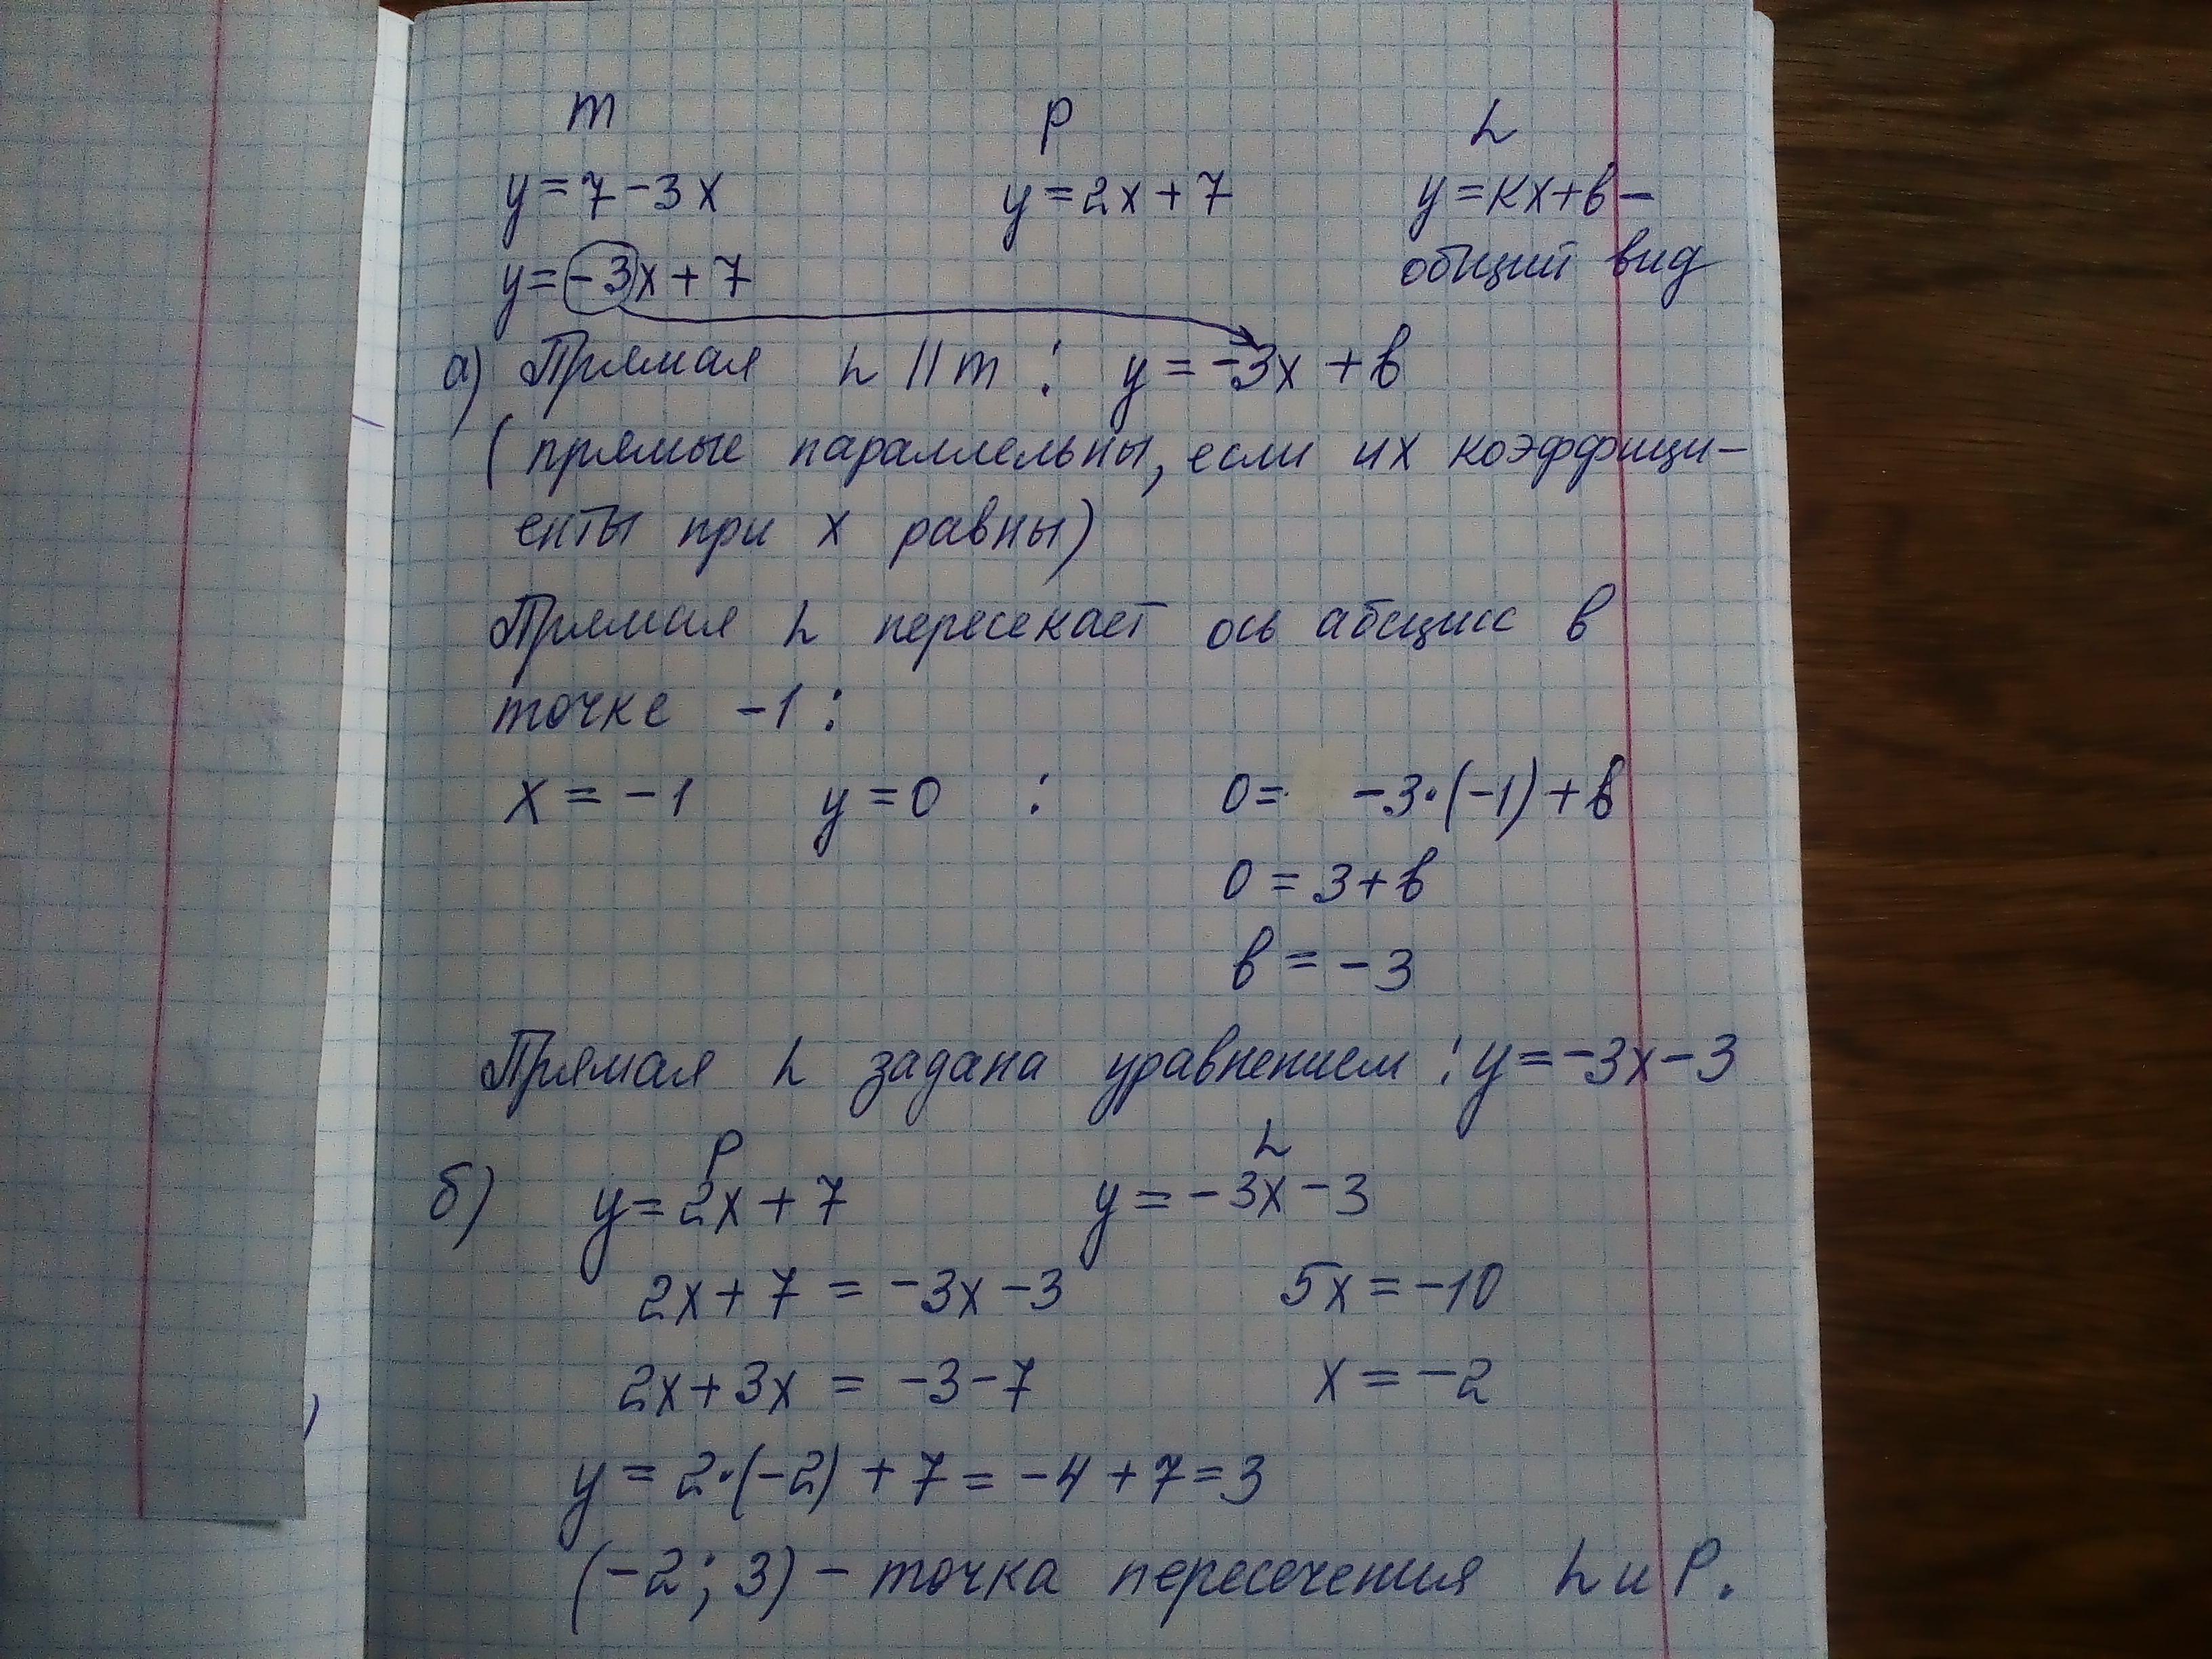 m p L
y=7-3x y=2x+7 y=кx+в-
y=-3x+7 общий вид
а) Прямая L || m : y=-3x+в
(прямые параллельны, если их коэффици-
енты при x равны)
Прямая L пересекает ось абсцисс в
точке -1:
x=-1 y=0 : 0= -3·(-1)+в
0=3+в
в=-3
Прямая L задана уравнением: y=-3x-3
P L
б) y=2x+7 y=-3x-3
2x+7=-3x-3 5x=-10
2x+3x=-3-7 x=-2
y=2·(-2)+7=-4+7=3
(-2; 3) - точка пересечения L и P.